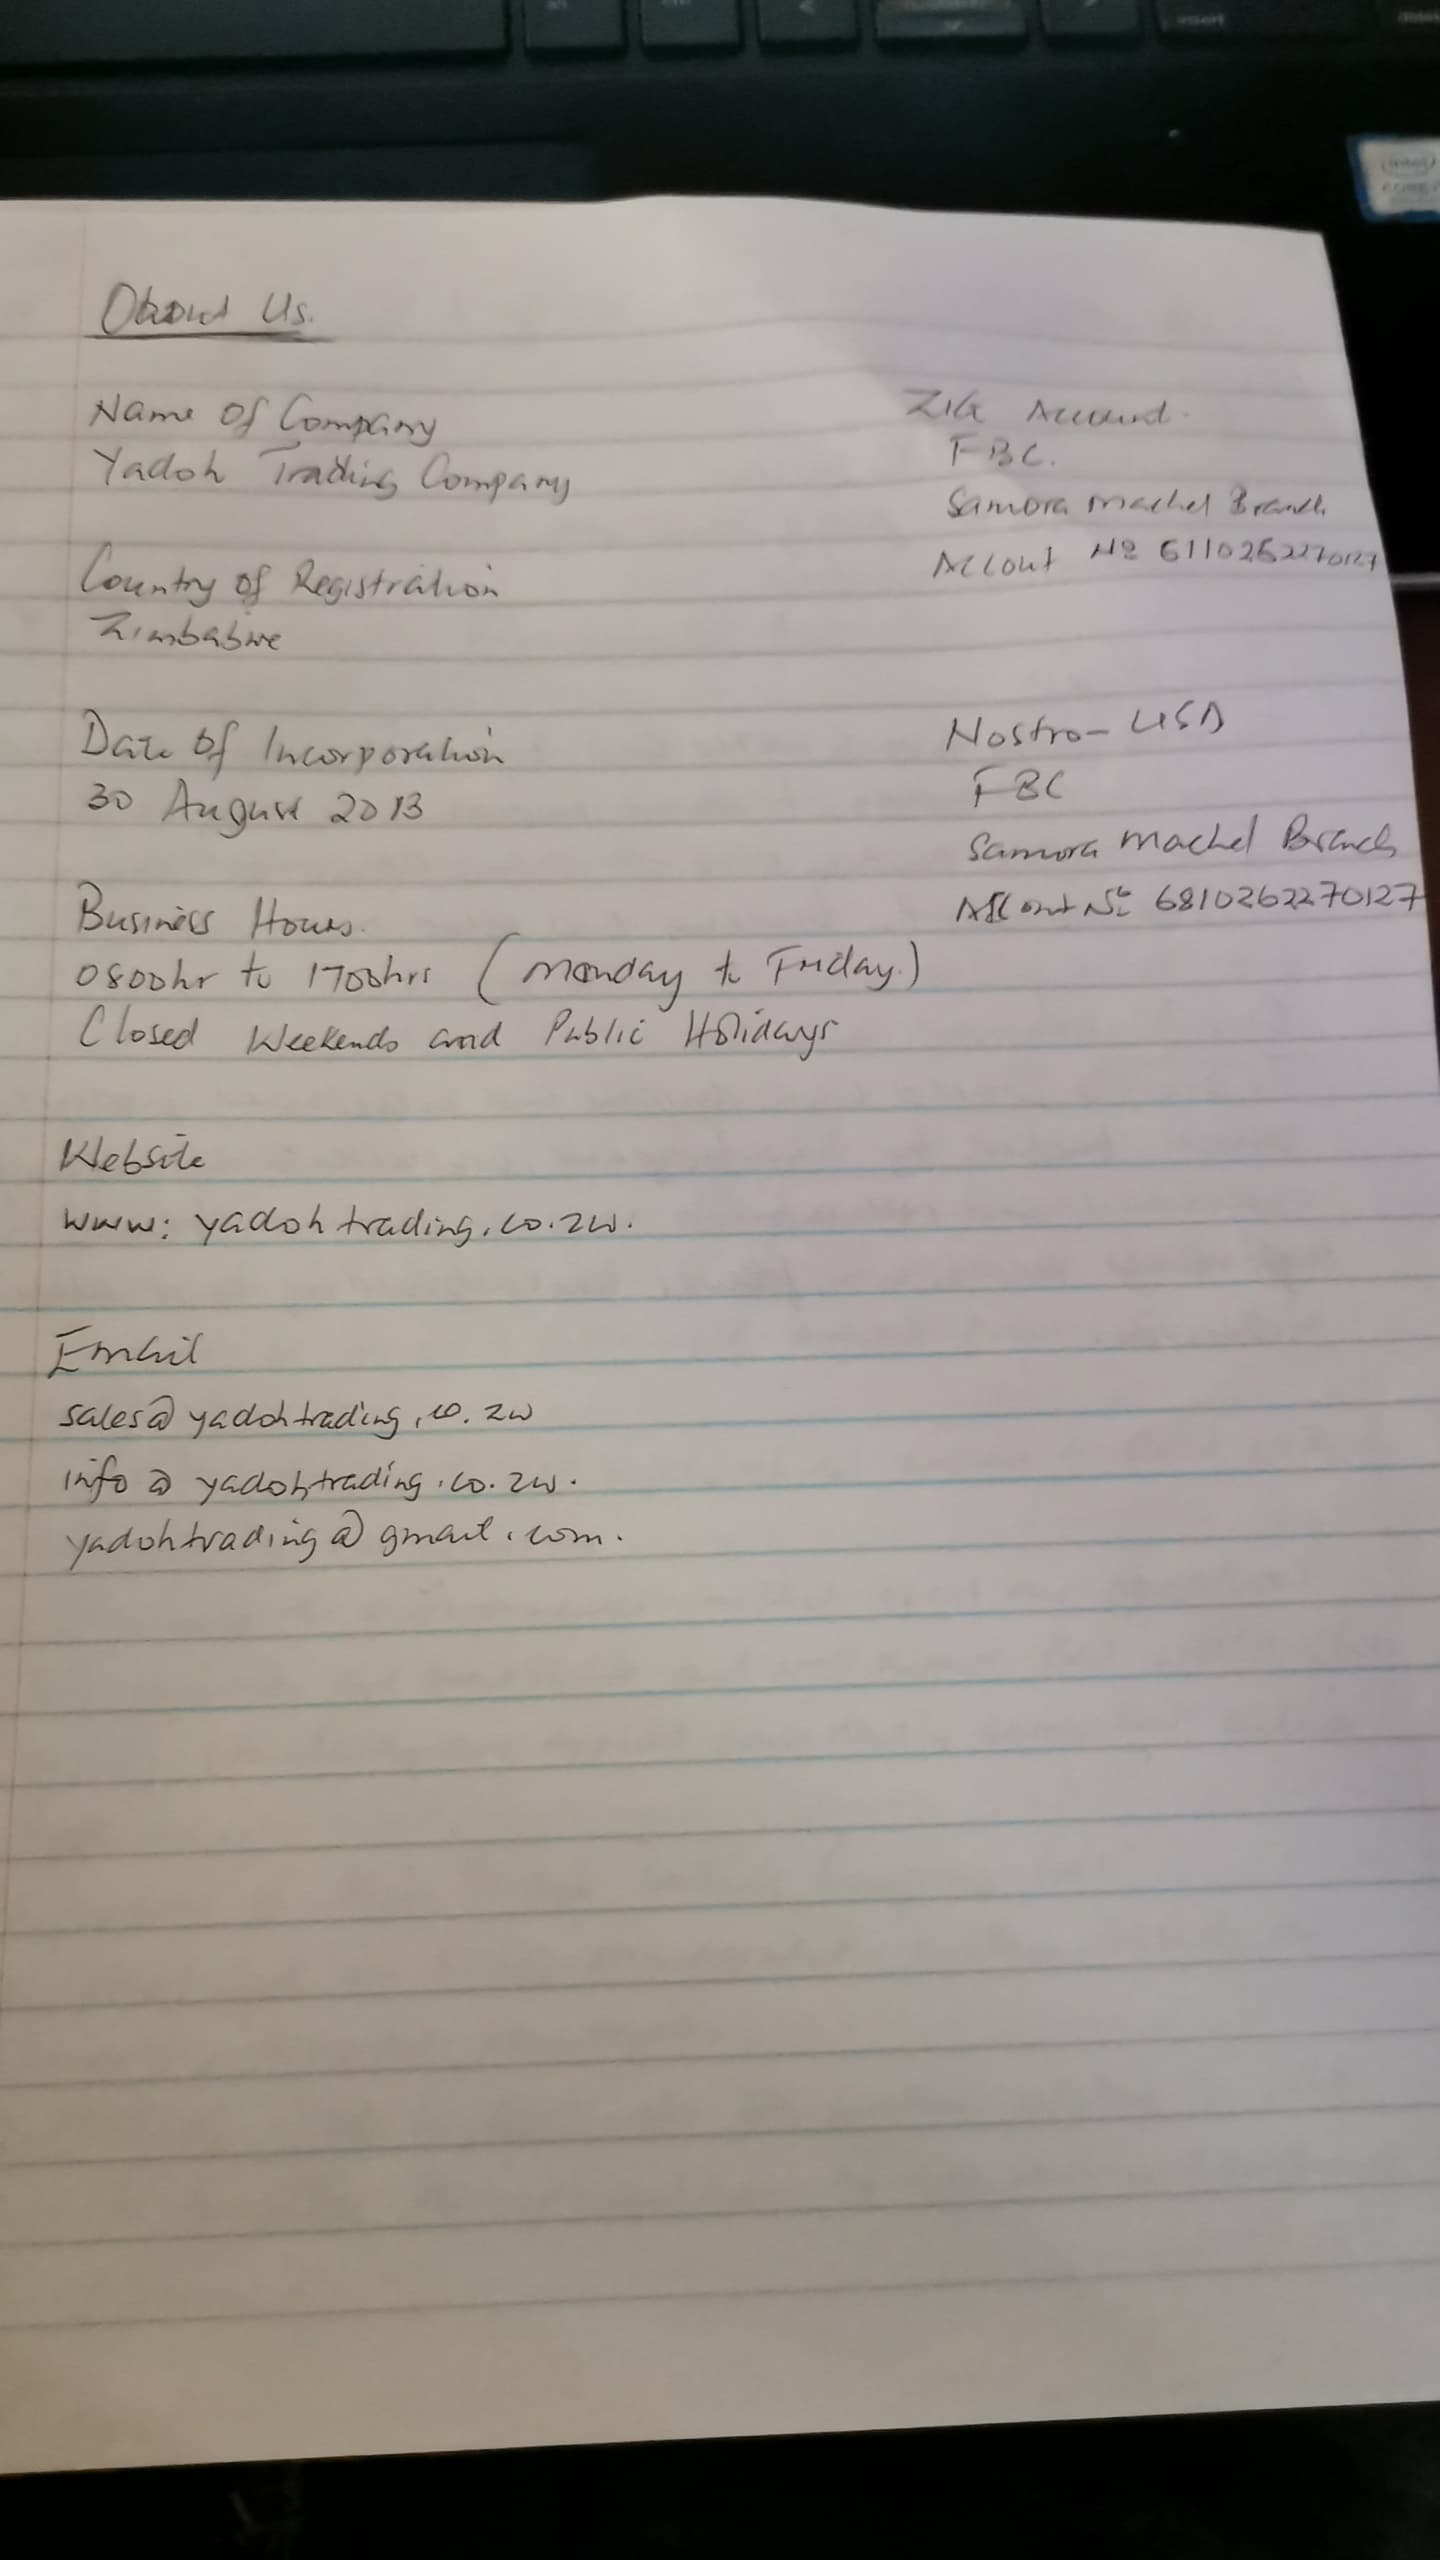 About Us.
Name of Company
Yadoh Trading Company
Country of Registration
Zimbabwe
Date of Incorporation
30 August 2013
Business Hours.
0800hr to 1700hrs (Monday to Friday.)
Closed Weekends and Public Holidays
Website
www: yadohtrading.co.zw.
Email
sales@yadohtrading.co.zw
info@yadohtrading.co.zw.
yadohtrading@gmail.com.
ZIG Account.
FBC.
Samora Machel Branch
Accout No
Nostro - USD
FBC
Samora Machel Branch
Account No 6810262270127
intel
CORE
insert